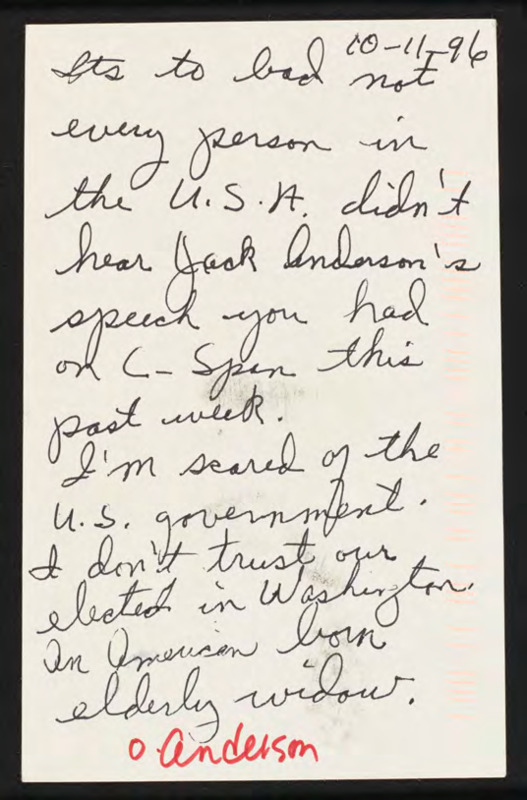 10-11-96
Its to bad not
every person in
the U.S.A. didn't
hear Jack Anderson's
speech you had
on C-Span this
past week.
I'm scared of the
U.S. government.
I don't trust our
elected in Washington.
An American born
elderly widow.
o Anderson